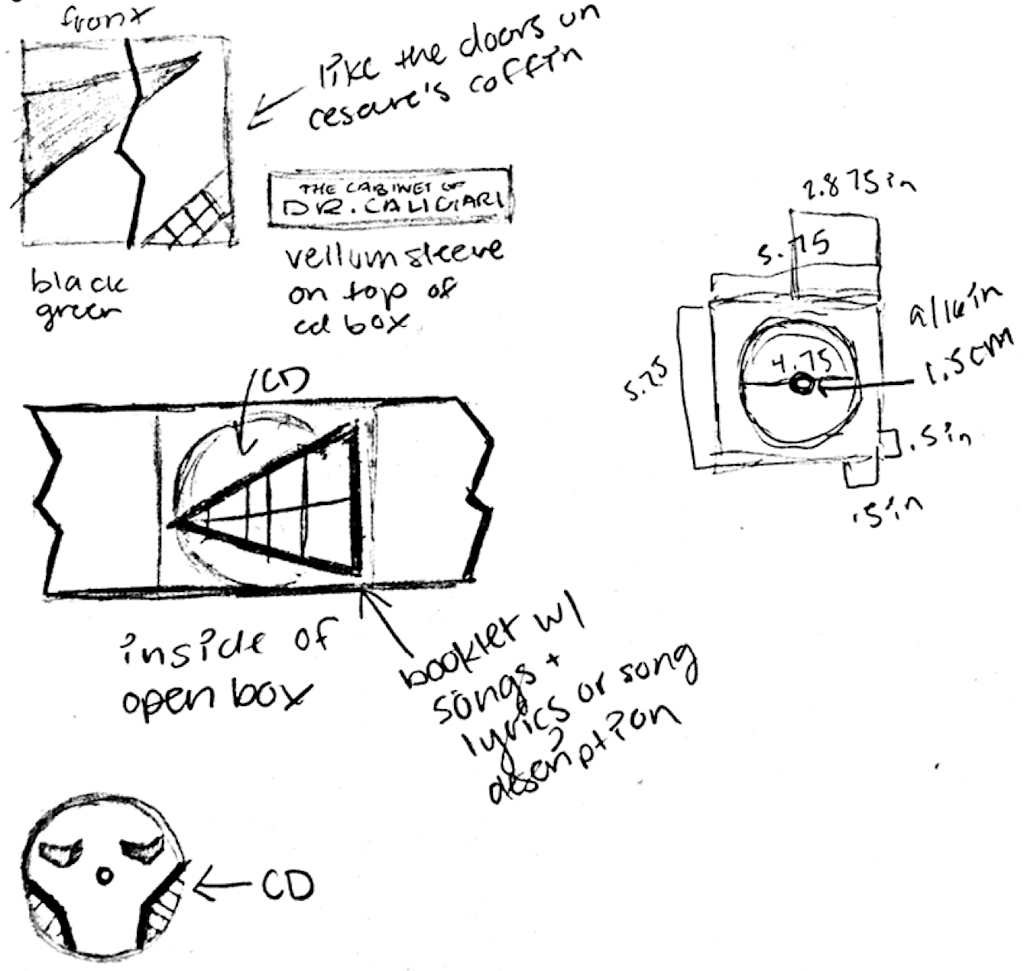 front
like the doors on
cesare's coffin
THE CABINET OF
DR. CALIGIARI
vellum sleeve
on top of
cd box
black
green
2.875in
5.75
4.75
5.25
9/16in
1.5cm
.5in
.5in
CD
inside of
open box
booklet w/
songs +
lyrics or song
description
CD